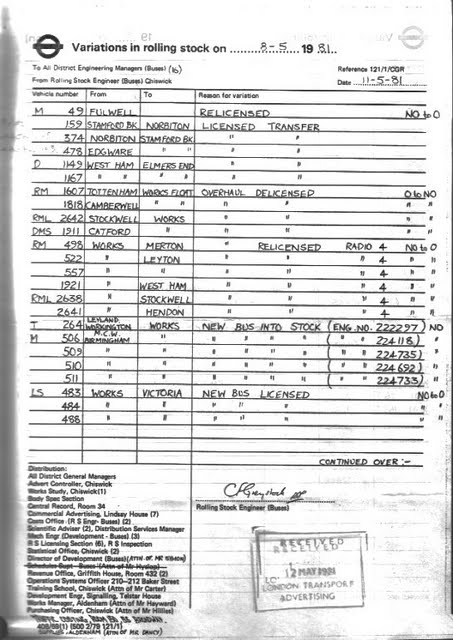 Variations in rolling stock on 8-5 1981
To All District Engineering Managers (Buses) (16)
Reference 121/1/CDR
From Rolling Stock Engineer (Buses) Chiswick
Date 11-5-81
Vehicle number From To Reason for variation
M 49 FULWELL RELICENSED NO to O
159 STAMFORD BK. NORBITON LICENSED TRANSFER
374 NORBITON STAMFORD BK. " "
478 EDGWARE " " "
D 1149 WEST HAM ELMERS END " "
1167 " " " " " "
RM 1607 TOTTENHAM WORKS FLOAT OVERHAUL DELICENSED O to NO
1818 CAMBERWELL " " " " "
RML 2642 STOCKWELL WORKS " " "
DMS 1911 CATFORD " " " "
RM 498 WORKS MERTON " RELICENSED RADIO 4 NO to O
522 " LEYTON " " " 4 " "
557 " " " " " 4 " "
1921 " WEST HAM " " " 4 " "
RML 2638 " STOCKWELL " " " 4 " "
2641 " HENDON " " " 4 " "
T 264 LEYLAND WORKINGTON WORKS NEW BUS INTO STOCK (ENG. NO. 222297) NO
M 506 M.C.W. BIRMINGHAM " " " " " ( " " 224118) "
509 " " " " " " ( " " 224735) "
510 " " " " " " ( " " 224692) "
511 " " " " " " ( " " 224733) "
LS 483 WORKS VICTORIA NEW BUS LICENSED NO to O
484 " " " " " "
488 " " " " " "
CONTINUED OVER :-
Distribution:
All District General Managers
Advert Controller, Chiswick
Works Study, Chiswick (1)
Body Spec Section
Central Record, Room 34
Commercial Advertising, Lindsay House (7)
Costs Office (R S Engr- Buses) (2)
Scientific Adviser (2), Distribution Services Manager
Mech Engr (Development - Buses) (3)
R S Licensing Section (6), R S Inspection
Statistical Office, Chiswick (2)
Director of Development (Buses)
Schedules Supt - Buses (Attn of Mr Hyslop)
Revenue Office, Griffith House, Room 432 (2)
Operations Systems Officer 210-212 Baker Street
Training School, Chiswick (Attn of Mr Carter)
Development Engr, Signalling, Telstar House
Works Manager, Aldenham (Attn of Mr Hayward)
Purchasing Officer, Chiswick (Attn of Mr Hillies)
Rolling Stock Engineer (Buses)
RECEIVED
12 MAY 1981
LONDON TRANSPORT
ADVERTISING